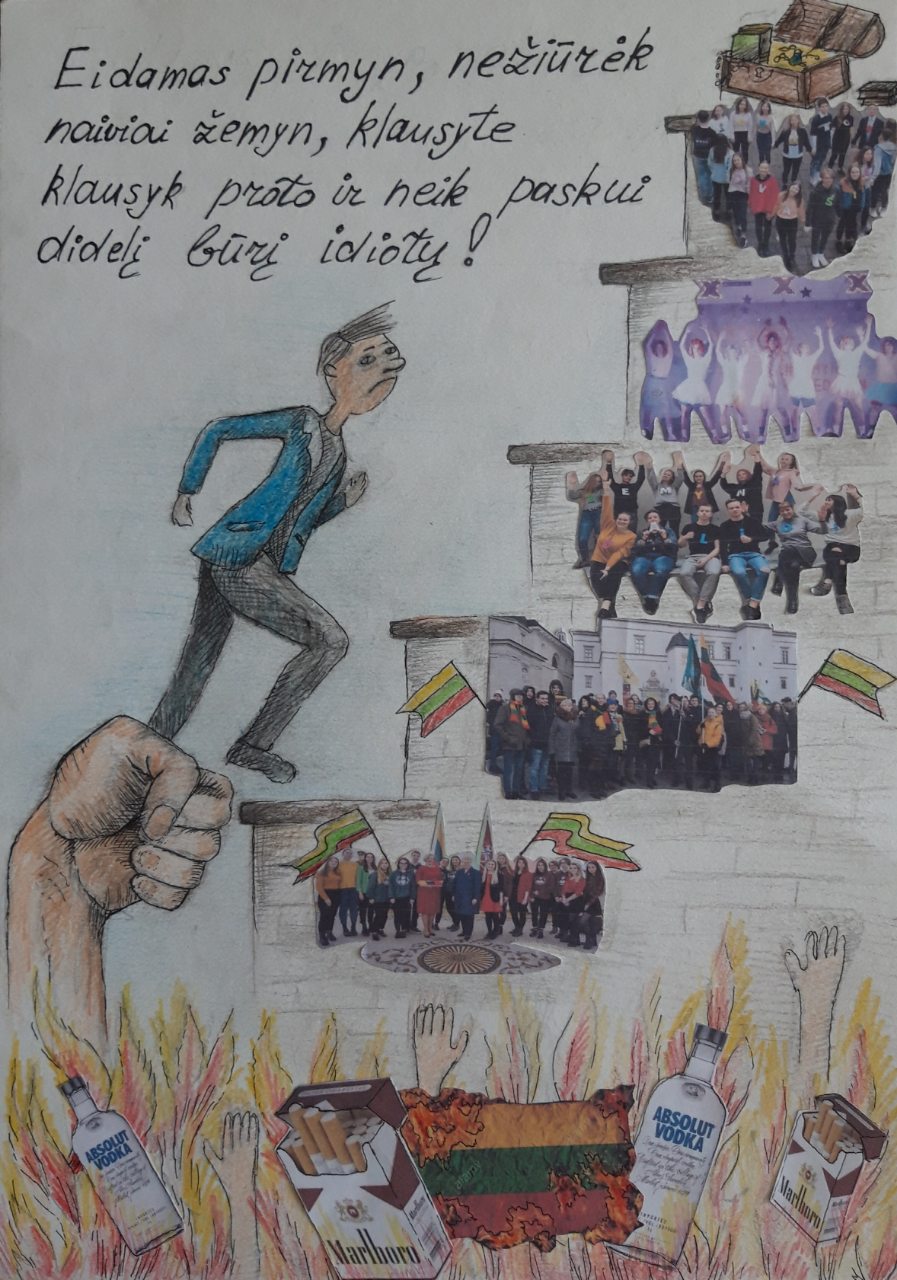 Eidamas pirmyn, nežiūrėk
naiviai žemyn, klausyte
klausyk proto ir neik paskui
didelį būrį idiotų!
X X X
E M N
L I
V
S
ABSOLUT
VODKA
Marlboro
Marlboro
ABSOLUT
VODKA
Marlboro